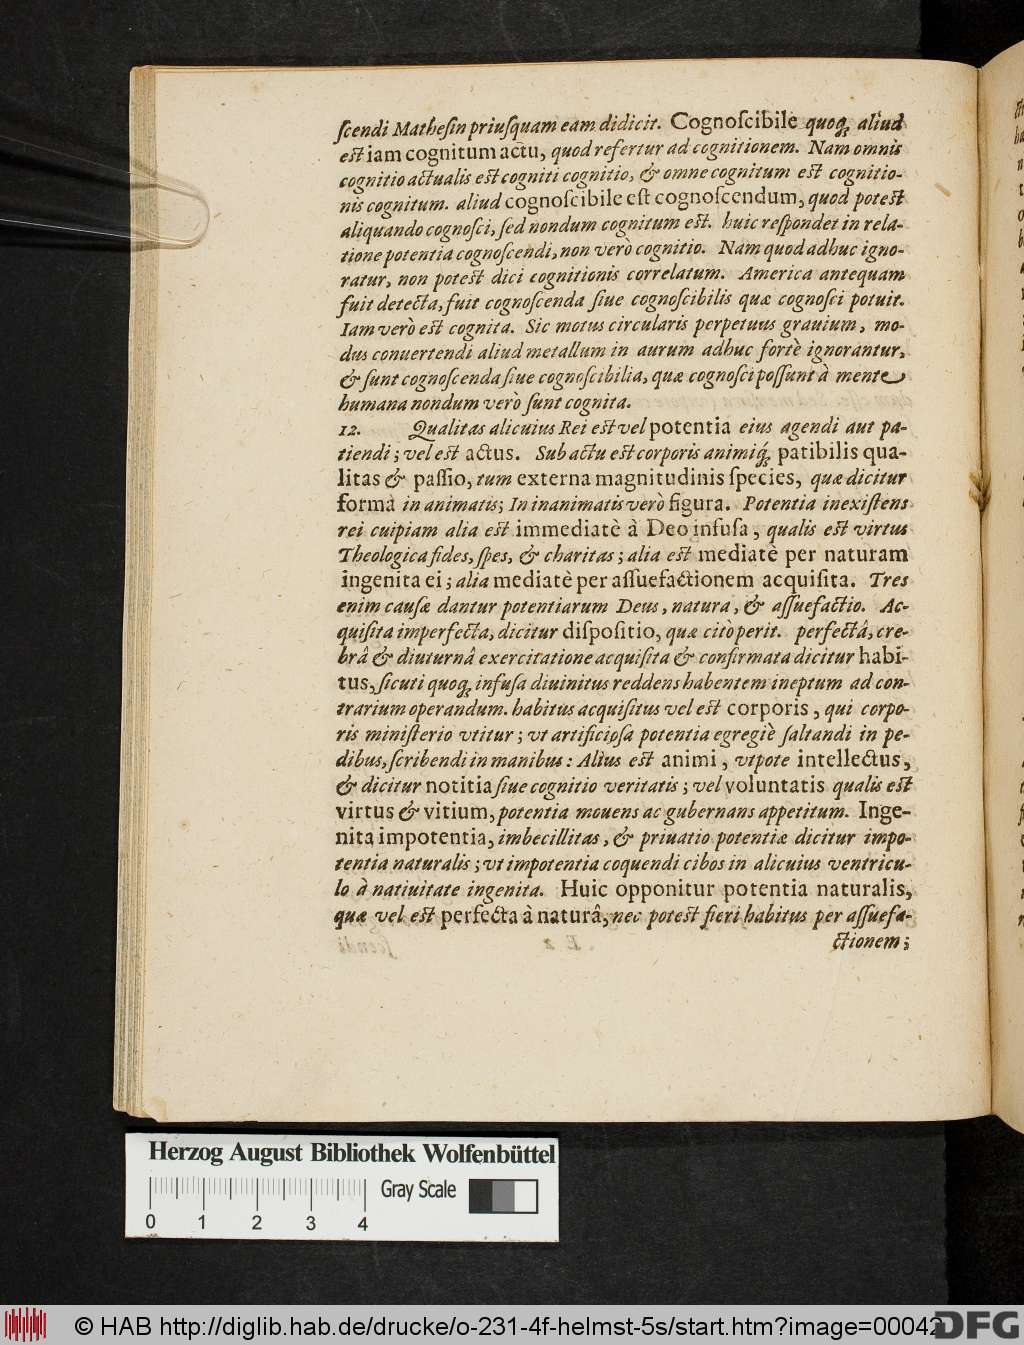 ſcendi Matheſin priuſquam eam didicit. Cognoſcibile quoqꝫ aliud
est iam cognitum actu, quod refertur ad cognitionem. Nam omnis
cognitio actualis est cogniti cognitio, & omne cognitum est cognitio-
nis cognitum. aliud cognoſcibile eſt cognoſcendum, quod potest
aliquando cognoſci, ſed nondum cognitum est. huic reſpondet in rela-
tione potentia cognoſcendi, non verò cognitio. Nam quod adhuc igno-
ratur, non potest dici cognitionis correlatum. America antequam
fuit detecta, fuit cognoſcenda ſiue cognoſcibilis quæ cognoſci potuit.
Iam verò est cognita. Sic motus circularis perpetuus grauium, mo-
dus conuertendi aliud metallum in aurum adhuc fortè ignorantur,
& ſunt cognoſcenda ſiue cognoſcibilia, quæ cognoſci poſſunt à mente
humana nondum verò ſunt cognita.
12. Qualitas alicuius Rei est vel potentia eius agendi aut pa-
tiendi; vel est actus. Sub actu est corporis animiq́ꝫ patibilis qua-
litas & paſſio, tum externa magnitudinis ſpecies, quæ dicitur
forma in animatis; In inanimatis verò figura. Potentia inexiſtens
rei cuipiam alia est immediatè à Deo infuſa, qualis est virtus
Theologica fides, ſpes, & charitas; alia est mediatè per naturam
ingenita ei; alia mediatè per aſſuefactionem acquiſita. Tres
enim cauſæ dantur potentiarum Deus, natura, & aſſuefactio. Ac-
quiſita imperfecta, dicitur diſpoſitio, quæ citò perit. perfectâ, cre-
brâ & diuturnâ exercitatione acquiſita & confirmata dicitur habi-
tus, ſicuti quoqꝫ infuſa diuinitus reddens habentem ineptum ad con-
trarium operandum. habitus acquiſitus vel est corporis, qui corpo-
ris miniſterio vtitur; vt artificioſa potentia egregiè ſaltandi in pe-
dibus, ſcribendi in manibus: Alius est animi, vtpote intellectus,
& dicitur notitia ſiue cognitio veritatis; vel voluntatis qualis est
virtus & vitium, potentia mouens ac gubernans appetitum. Inge-
nita impotentia, imbecillitas, & priuatio potentiæ dicitur impo-
tentia naturalis; vt impotentia coquendi cibos in alicuius ventricu-
lo à natiuitate ingenita. Huic opponitur potentia naturalis,
quæ vel est perfecta à naturâ, nec potest fieri habitus per aſſuefa-
ctionem;
Herzog August Bibliothek Wolfenbüttel
Gray Scale
0 1 2 3 4
© HAB http://diglib.hab.de/drucke/o-231-4f-helmst-5s/start.htm?image=00042
DFG